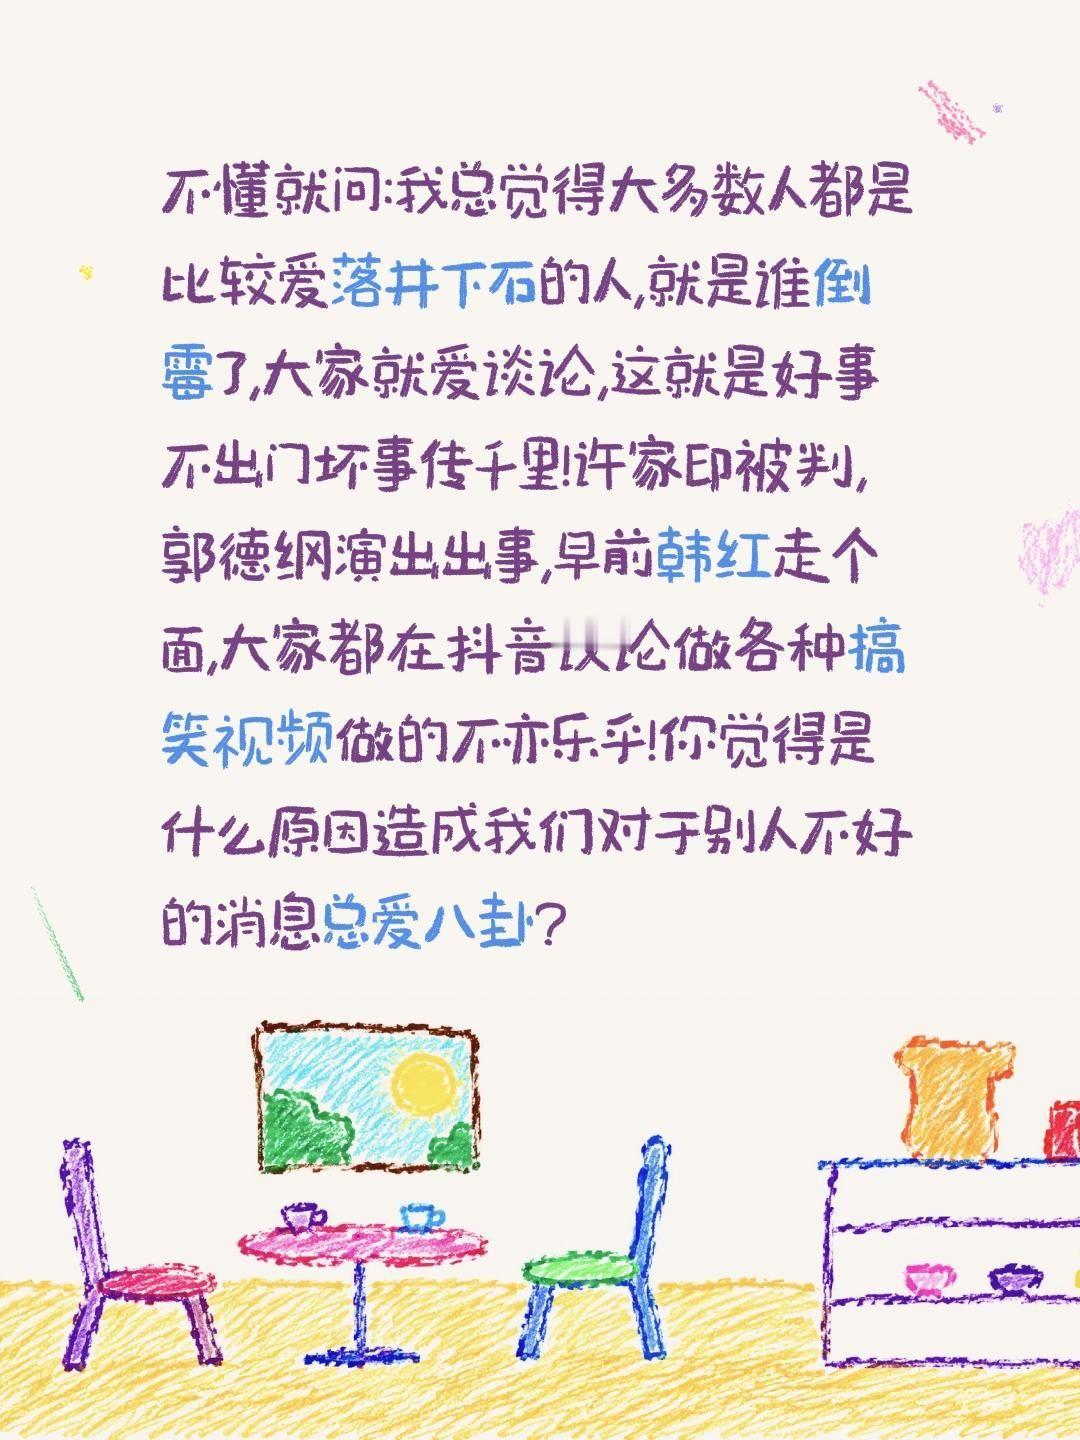 不懂就问:我总觉得大多数人都是
比较爱落井下石的人,就是谁倒
霉了,大家就爱谈论,这就是好事
不出门坏事传千里!许家印被判,
郭德纲演出出事,早前韩红走个
面,大家都在抖音议论做各种搞
笑视频做的不亦乐乎!你觉得是
什么原因造成我们对于别人不好
的消息总爱八卦?